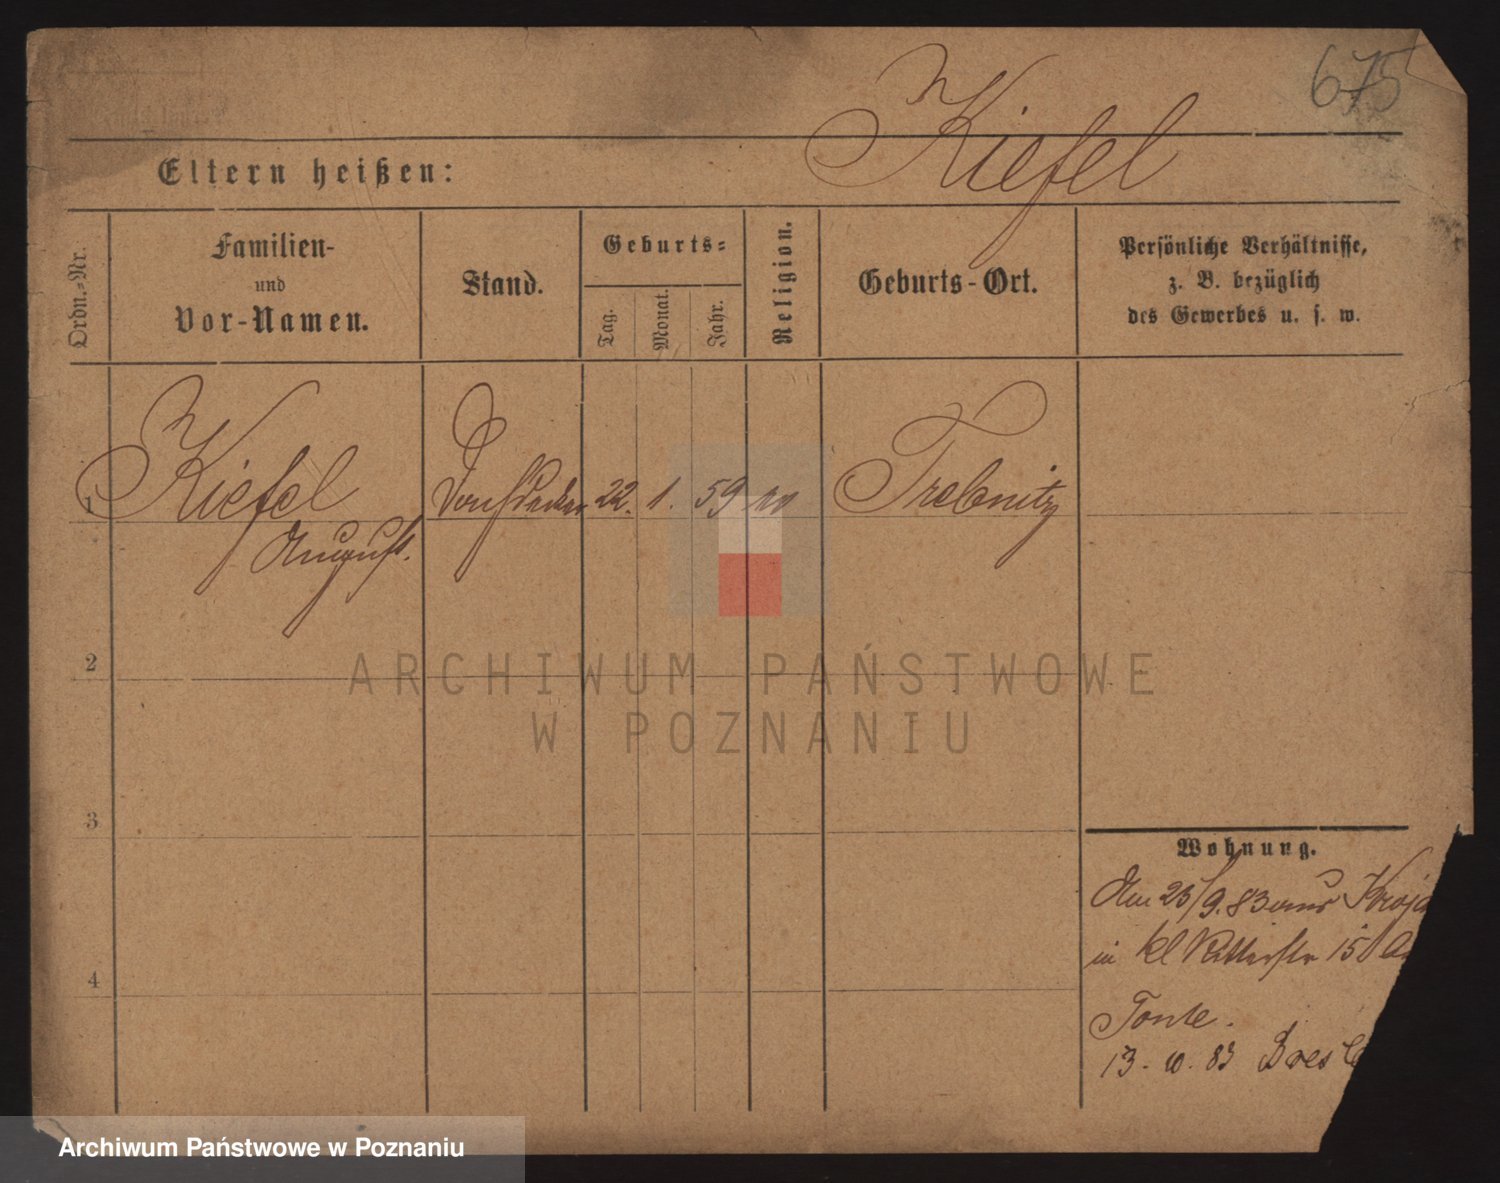 675
Kiefel
Eltern heißen:
Ordn.-Nr.
Familien-
und
Vor-Namen.
Stand.
Geburts-
Tag.
Monat.
Jahr.
Religion.
Geburts-Ort.
Persönliche Verhältnisse,
z. B. bezüglich
des Gewerbes u. s. w.
1
Kiefel
August.
22. 1. 59
Trebnitz
2
ARCHIWUM PAŃSTWOWE
W POZNANIU
3
Wohnung.
Am 25/9.83 aus
in kl Ritterstr 15
4
13. 10. 83
Archiwum Państwowe w Poznaniu